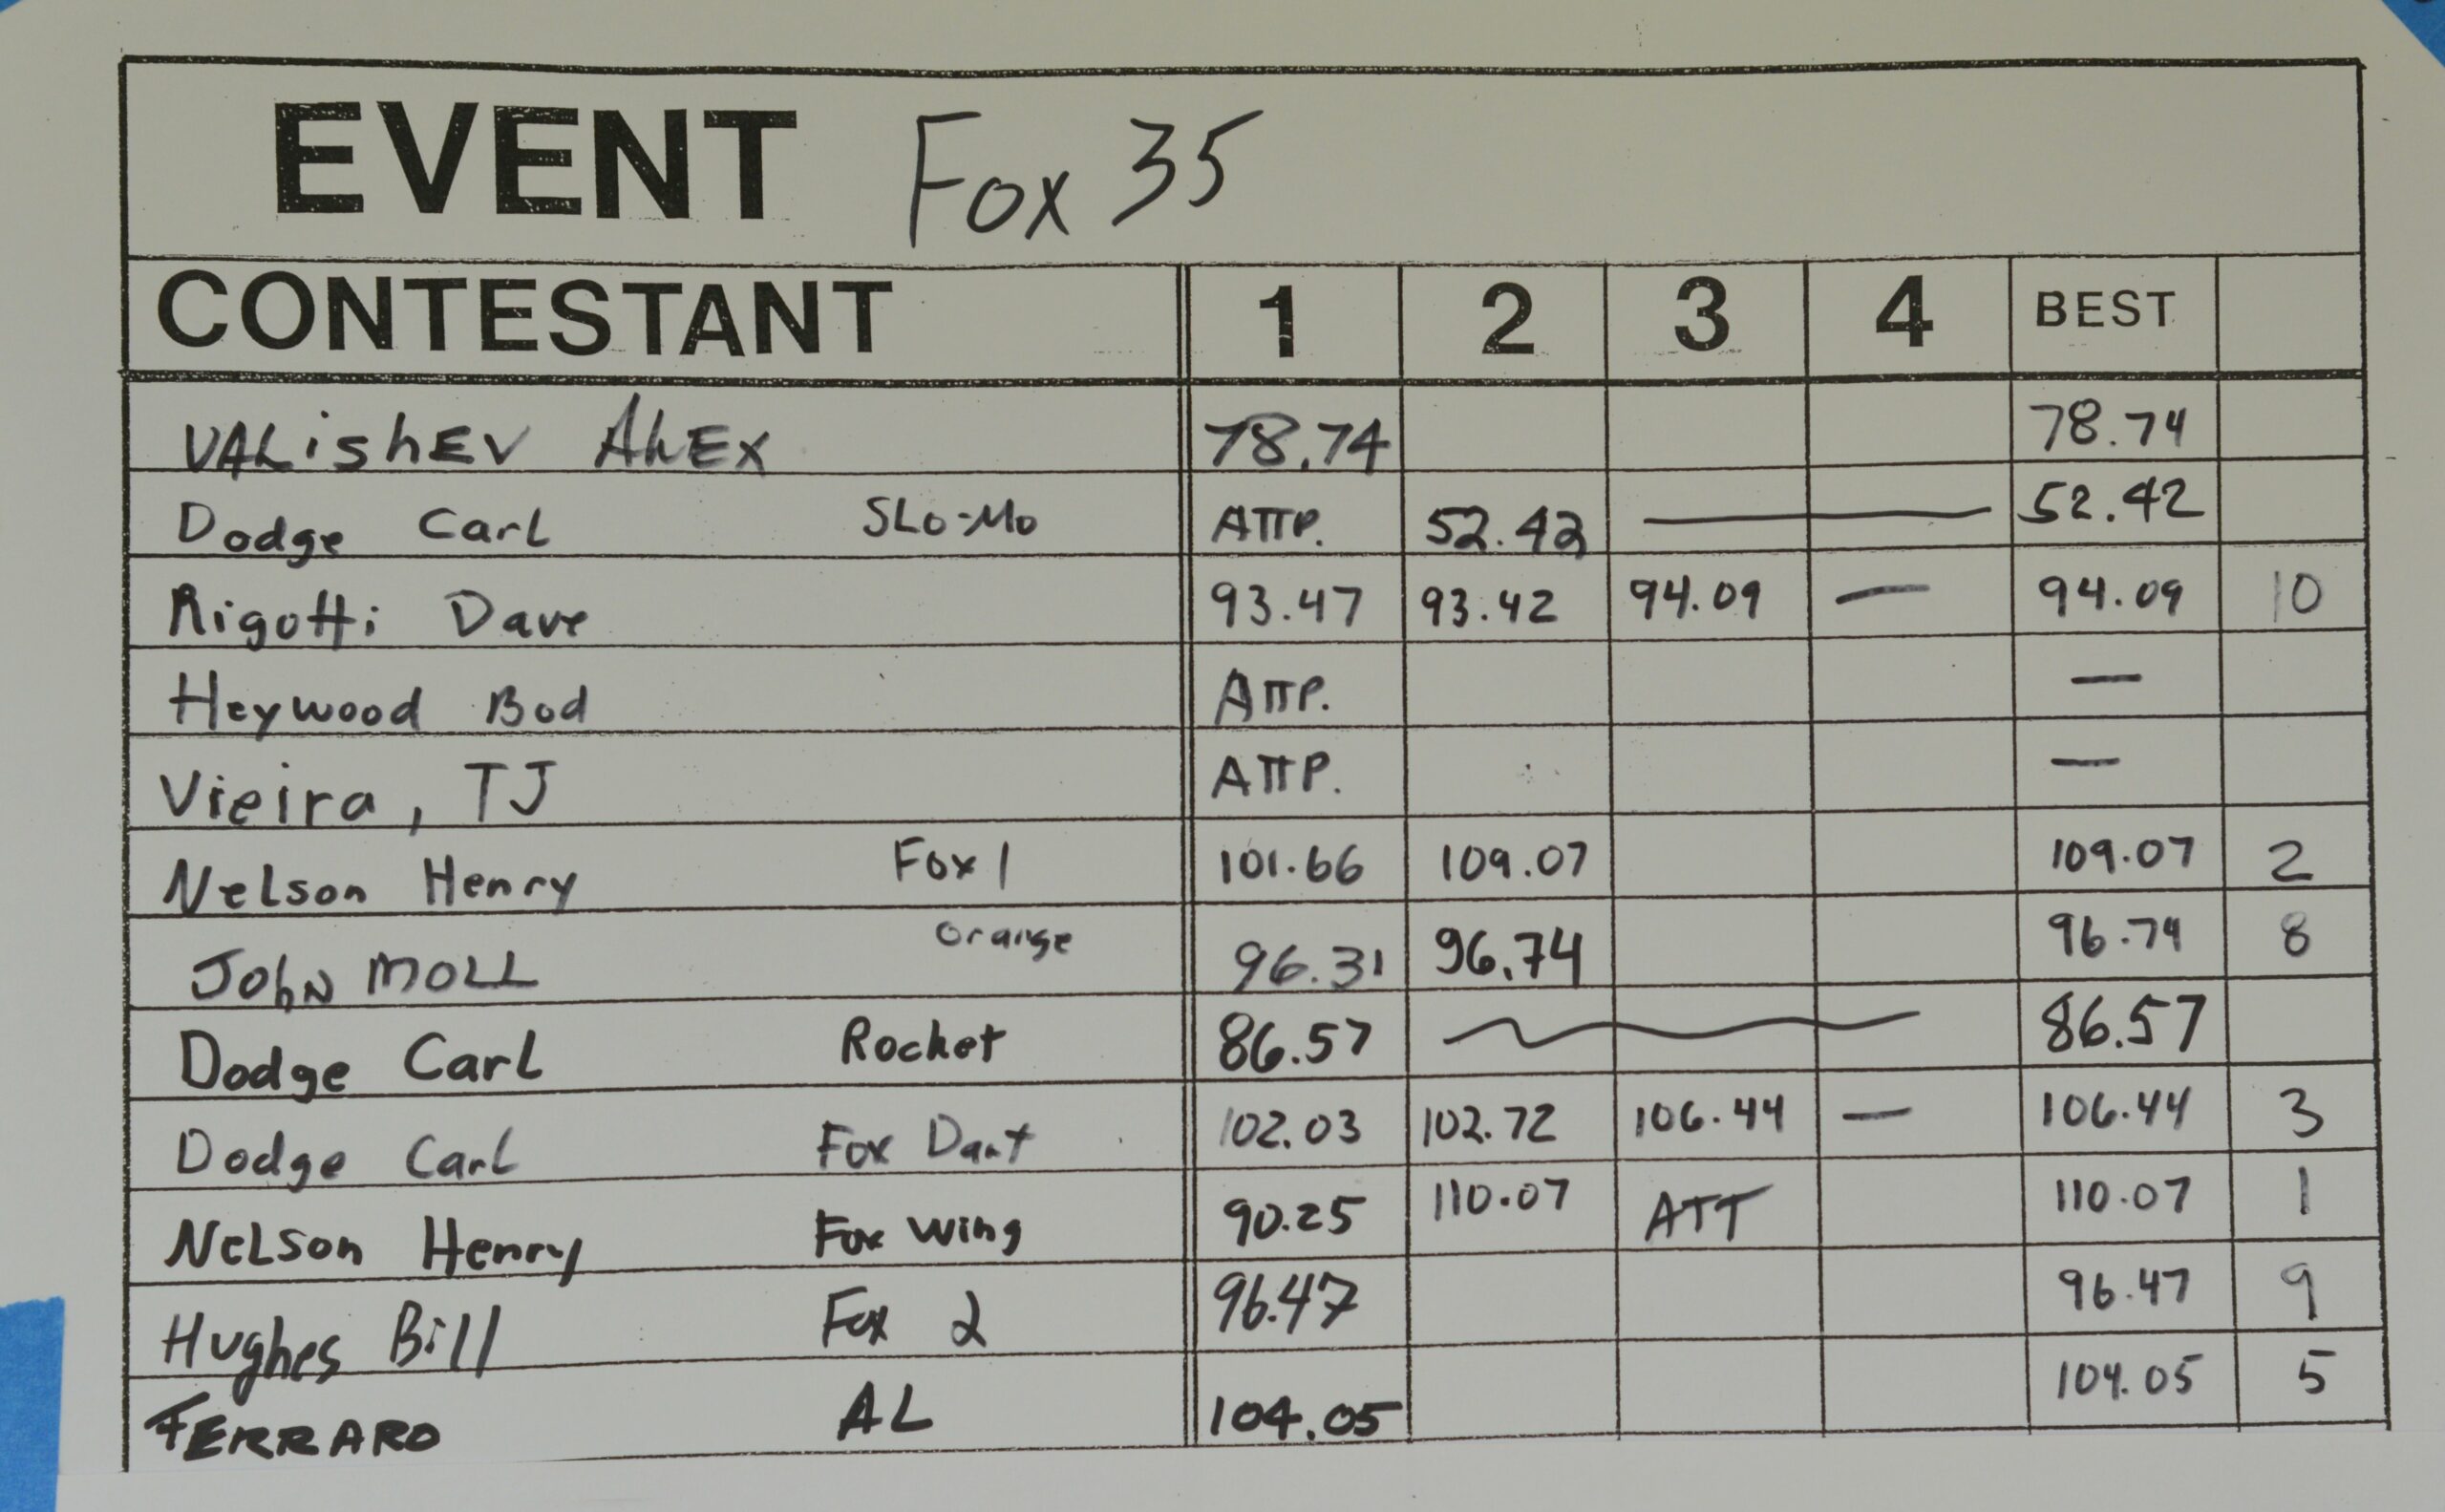 EVENT Fox 35
CONTESTANT 1 2 3 4 BEST
VALishEV ALEX 78.74 78.74
Dodge Carl SLo-Mo ATTP. 52.42 — 52.42
Rigotti Dave 93.47 93.42 94.09 — 94.09 10
Heywood Bod ATTP. —
Vieira, TJ ATTP. —
Nelson Henry Fox 1 101.66 109.07 109.07 2
JohN MOLL orange 96.31 96.74 96.74 8
Dodge Carl Rocket 86.57 — 86.57
Dodge Carl Fox Dart 102.03 102.72 106.44 — 106.44 3
NeLson Henry Fox wing 90.25 110.07 ATT 110.07 1
Hughes Bill Fox 2 96.47 96.47 9
FERRARO AL 104.05 104.05 5